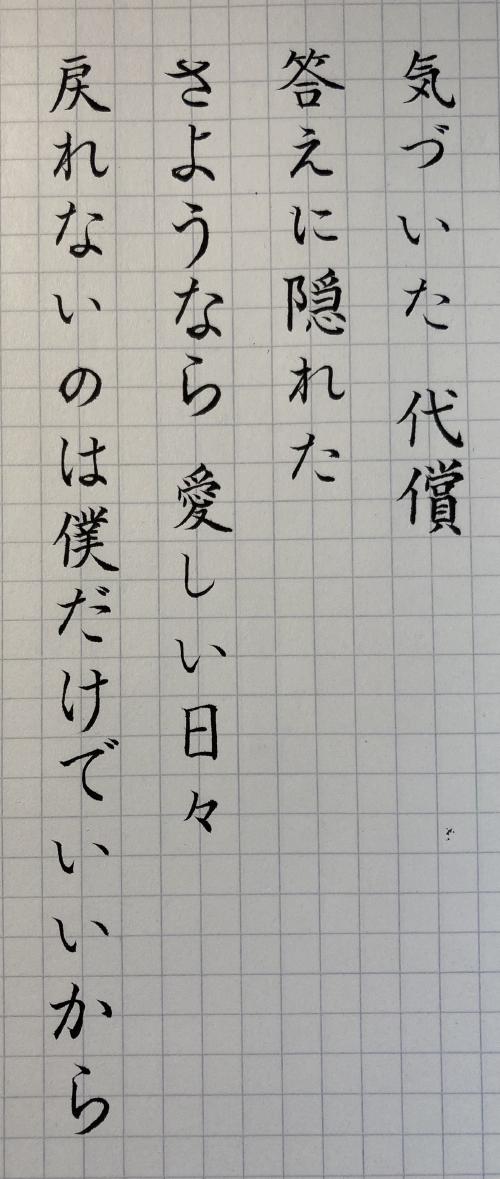 気づいた 代償
答えに隠れた
さようなら 愛しい日々
戻れないのは僕だけでいいから